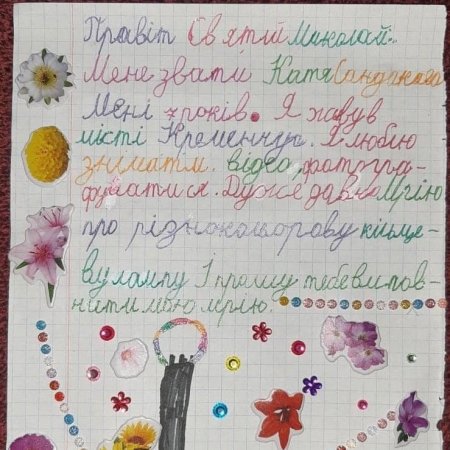 Правіт Святий Миколай.
Мене звати Катя
Мені 7 років. Я живу в
місті Кременчук. Я люблю
знімати відео, фотогра-
фуватися. Дуже давно мрію
про різнокольорову кільце-
ву лампу І прошу тебе випов-
нити мою мрію.